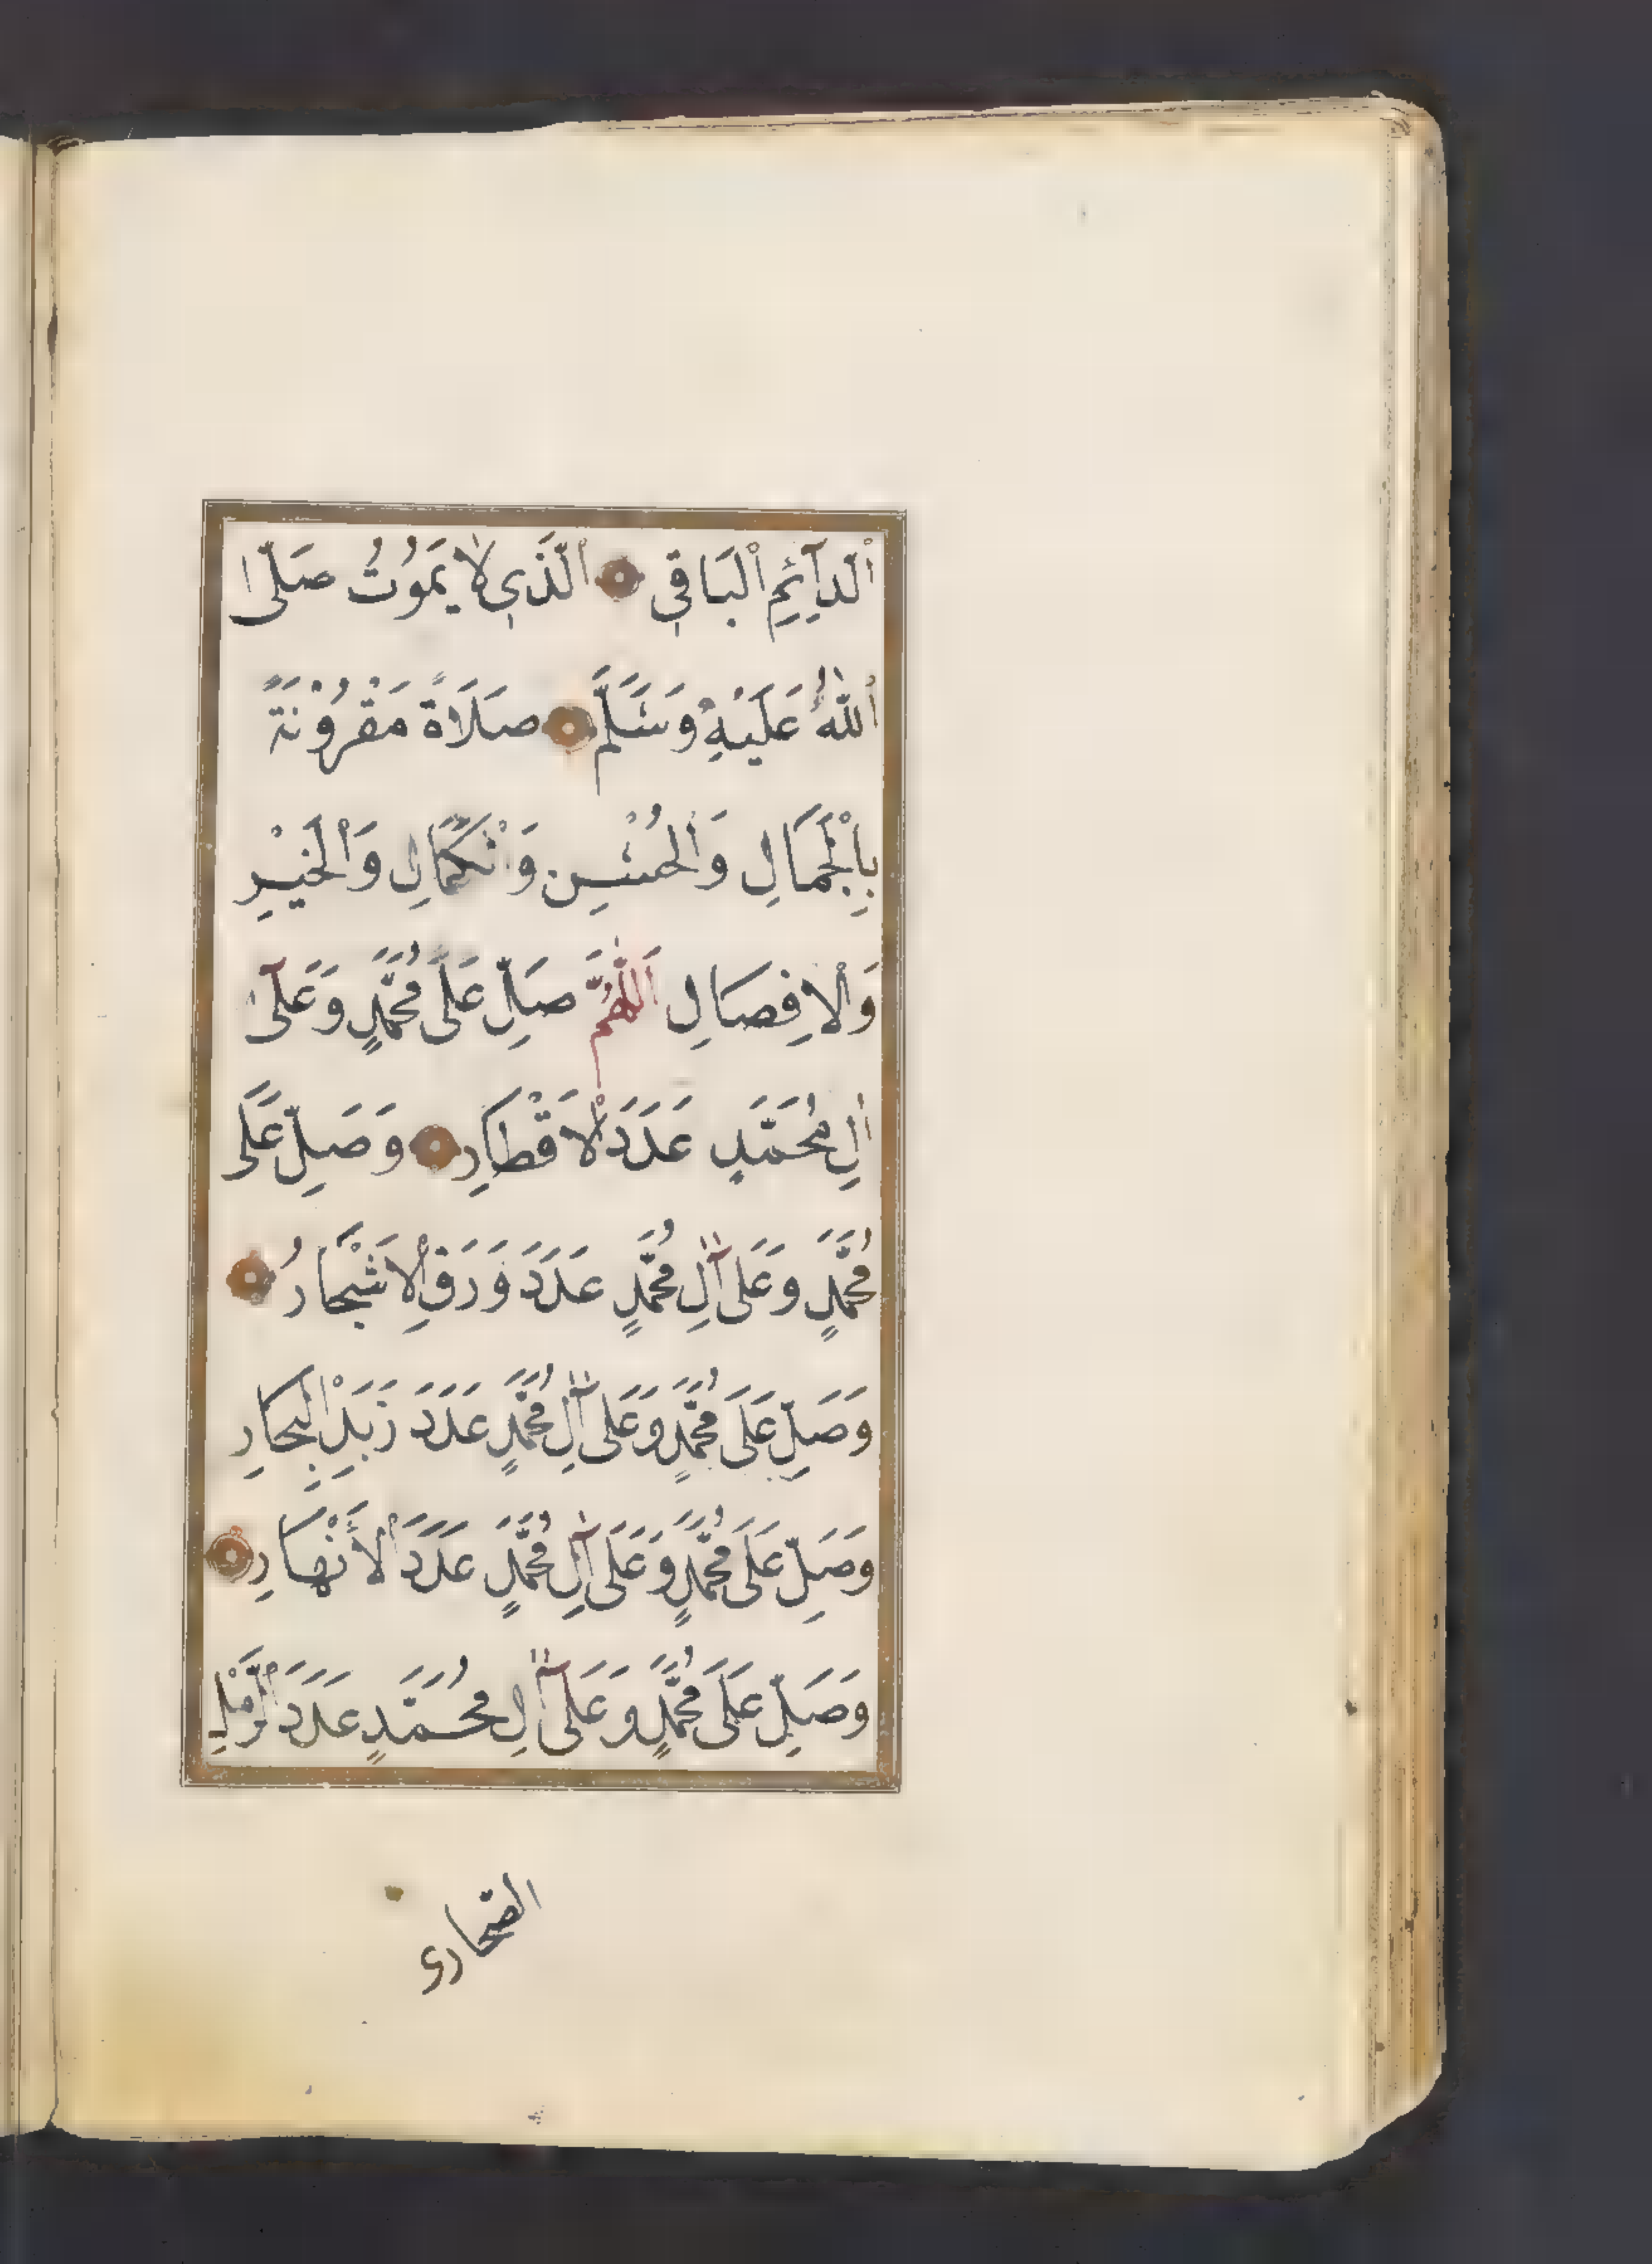 اَلدَّآئِمِ اَلْبَاقِي اَلَّذِي لَا يَمُوتُ صَلَّى
اللهُ عَلَيْهِ وَسَلَّمَ صَلَاةً مَقْرُوْنَةً
بِالْجَمَالِ وَالْحُسْنِ وَالْكَمَالِ وَالْخَيْرِ
وَالْاِفِصَالِ اَللّٰهُمَّ صَلِّ عَلَى مُحَمَّدٍ وَعَلَى
اٰلِ مُحَمَّدٍ عَدَدَ الْاَقْطَارِ وَصَلِّ عَلَى
مُحَمَّدٍ وَعَلَى اٰلِ مُحَمَّدٍ عَدَدَ وَرَقِ الْاَشْجَارُ
وَصَلِّ عَلَى مُحَمَّدٍ وَعَلَى اٰلِ مُحَمَّدٍ عَدَدَ زَبَدِ الْبِحَارِ
وَصَلِّ عَلَى مُحَمَّدٍ وَعَلَى اٰلِ مُحَمَّدٍ عَدَدَ الْأَنْهَارِ
وَصَلِّ عَلَى مُحَمَّدٍ وَعَلَى اٰلِ مُحَمَّدٍ عَدَدَ الرَّمْلِ
الصحارى